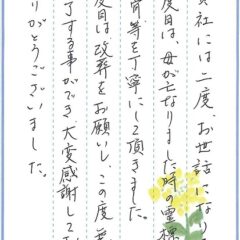 社には二度、お世話になり
度目は、母が亡なりました時の霊標
骨等を丁寧にして頂きました。
度目は、改葬をお願いし、この度無
了する事ができ、大変感謝して
りがとうございました。